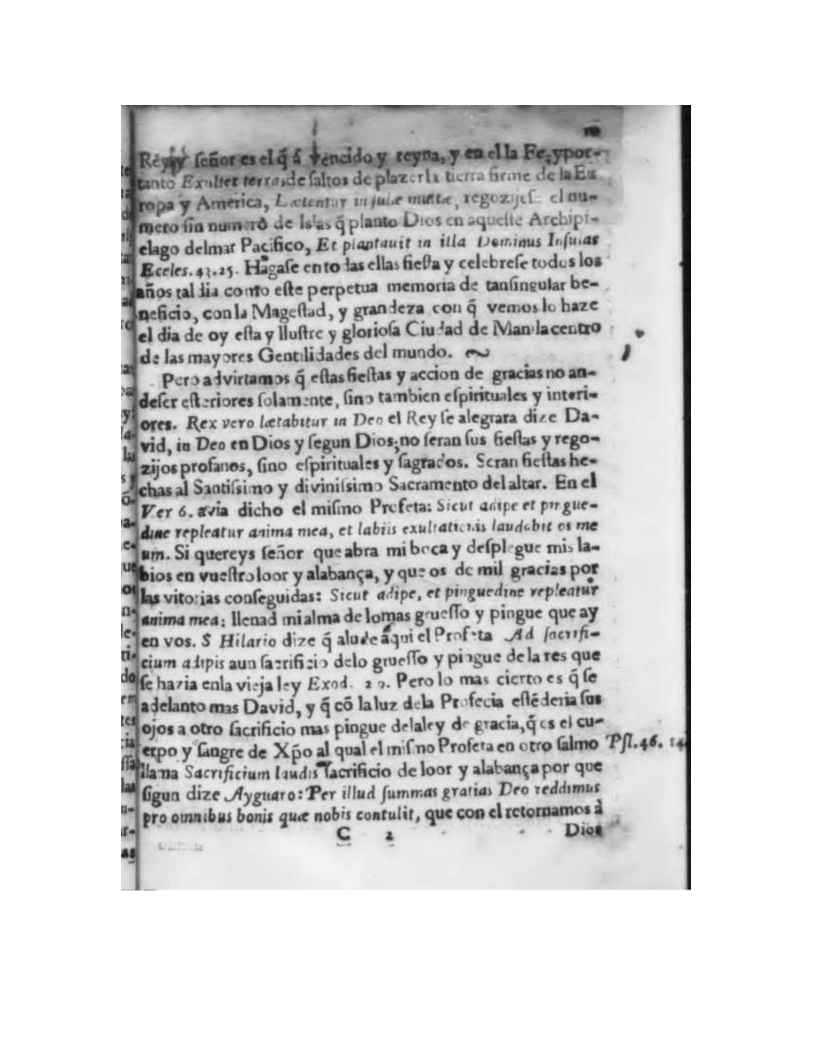 10
Rey y ſeñor es el q̃ á vencido y reyna, y en el la Fe, y por-
tanto Exultet terra, de ſaltos de plazer la tierra firme de la Eu
ropa y America, Lætentur inſulæ multæ, regozijeſe el nu-
mero ſin numero de Islas q̃ planto Dios en aqueſte Archipi-
elago del mar Pacifico, Et plantauit in illa Dominus Inſulas
Eccles. 43. 25. Hagaſe en to das ellas fieſta y celebreſe todos los
años tal dia como eſte perpetua memoria de tan ſingular be-
neficio, con la Mageſtad, y grandeza con q̃ vemos lo haze
el dia de oy eſta y lluſtre y glorioſa Ciudad de Manila centro
de las mayores Gentilidades del mundo.
Pero advirtamos q̃ eſtas fieſtas y accion de gracias no an-
deſer eſteriores ſolamente, ſino tambien eſpirituales y interi-
ores. Rex vero lætabitur in Deo el Rey ſe alegrara dize Da-
vid, in Deo en Dios y ſegun Dios; no ſeran ſus fieſtas y rego-
zijos profanos, ſino eſpirituales y ſagrados. Seran fieſtas he-
chas al Santiſsimo y diviniſsimo Sacramento del altar. En el
Ver 6. avia dicho el miſmo Profeta: Sicut adipe et pingue-
dine repleatur anima mea, et labiis exultationis laudabit os me
um. Si quereys ſeñor que abra mi boca y deſplegue mis la-
bios en vueſtro loor y alabança, y que os de mil gracias por
las vitorias conſeguidas: Sicut adipe, et pinguedine repleatur
anima mea: llenad mi alma de lo mas grueſſo y pingue que ay
en vos. S Hilario dize q̃ alude aqui el Profeta Ad ſacrifi-
cium adipis aun ſacrificio delo grueſſo y pingue de la res que
ſe hazia enla vieja ley Exod. 29. Pero lo mas cierto es q̃ ſe
adelanto mas David, y q̃ cõ la luz dela Profecia eſtẽderia ſus
ojos a otro ſacrificio mas pingue delaley de gracia, q̃ es el cu-
erpo y ſangre de Xp̃o al qual el miſmo Profeta en otro ſalmo Pſl. 46. 14
llama Sacrificium laudis ſacrificio de loor y alabança por que
ſigun dize Ayguaro: Per illud ſummas gratias Deo reddimus
pro omnibus bonis quæ nobis contulit, que con el retornamos à
C 2 Dios